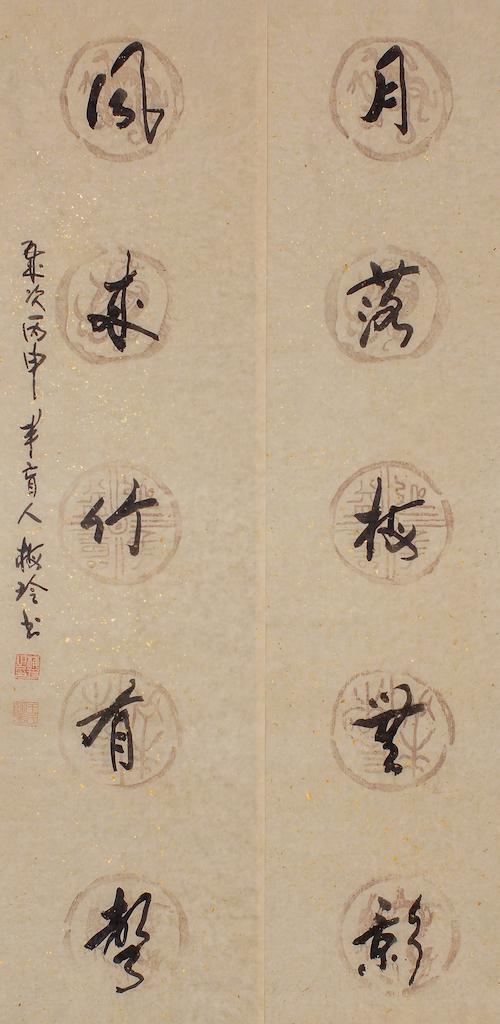 月落梅無影
風來竹有聲
歲次丙申 半盲人 梅玲書